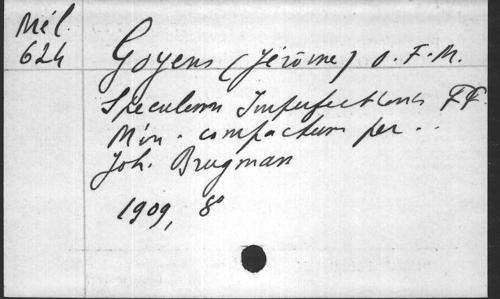 Mél.
624
Goyens (Jérôme) O.F.M.
Speculum Imperfectionis FF.
Min. compactum per ..
Joh. Brugman
1909, 8°